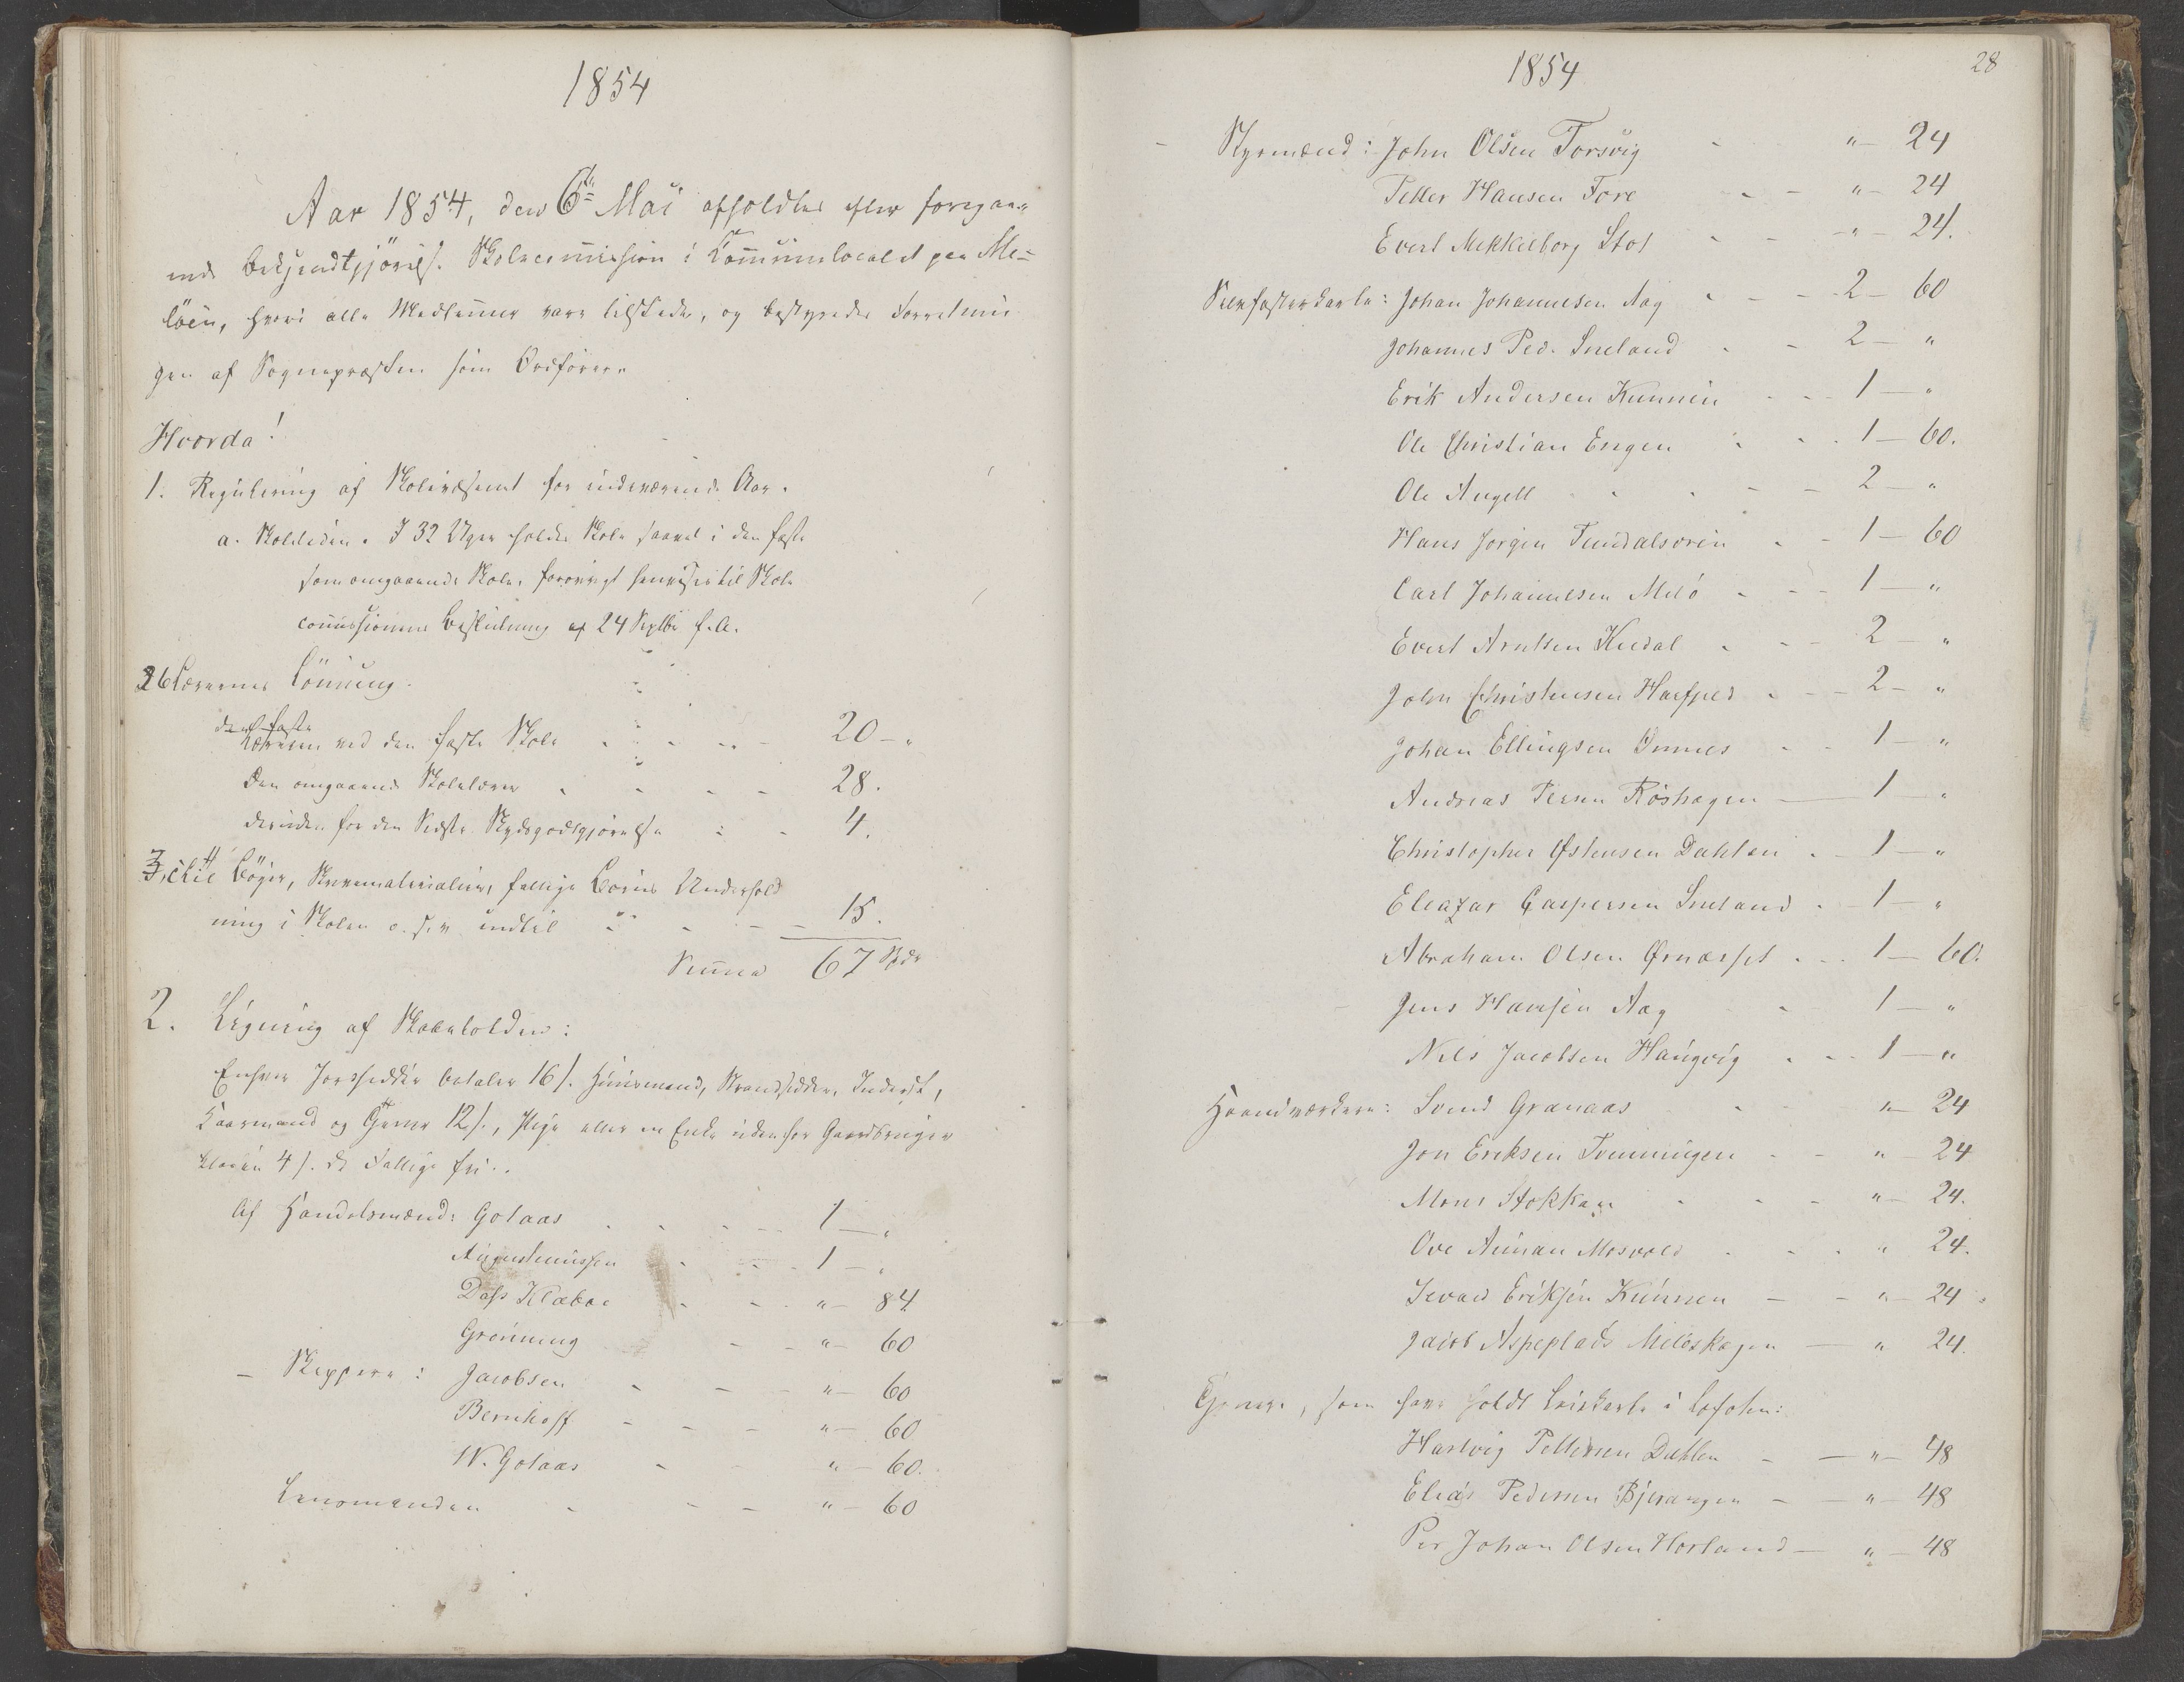 1854
Aar 1854, den 6te Mai afholdtes efter foregaa-
ende bekjendtgjörelse Skolecommission i Communelocalet paa Me-
löen, hvori alle Medlemmer vare tilstede, og bestyredes Forretnin
gen af Sognepræsten som Ordförer.
Hvorda!
1. Regulering af Skolevæsenet for indeværende Aar.
a. Skoletiden. I 32 Uger holdes Skole saavel i den faste
som omgaaende Skole, forövrigt henvises til Skole
commissionens Beslutning af 24 Septbr f. A.
26 Lærernes Lönning.
den faste
Læreren ved den faste Skole 20 - "
Den omgaaende Skolelærer 28.
desuden for den Sidste Skydsgodtgjörelse 4.
3, til Böger, Skrivematerialier, fattige Börns Underhold
ning i Skolen o. s. v. indtil 15.
Summa 67 Spdr
2. Ligning af Skoletolden:
Enhver Jordsidder betaler 16 s. Huusmand, Strandsidder, Inderst,
Kaarmand og Tjener 12 s., Pige eller en Enke udenfor Gaardbruger
klassen 4 s. de Fattige fri.
Af Handelsmænd: Gotaas 1 - "
Augustinussen 1 - "
Dass Klæboe " - 84
Grönning " - 60
- Skippere: Jacobsen " - 60
Bernhoff " - 60
N. Gotaas " - 60.
Lensmanden " - 60
1854
28
- Styrmænd: John Olsen Torsvig " - 24
Petter Hansen Fore " - 24
Evert Mekkelborg Stot " - 24.
Selvfosterkarle: Johan Johannesen Aag 2 - 60
Johannes Ped. Sneland 2 - "
Erik Andersen Kunnen 1 - "
Ole Christian Engen 1 - 60.
Ole Angell 2 - "
Hans Jörgen Fundalsören 1 - 60
Carl Johannesen Melö 1 - "
Evert Arntsen Kieldal 2 - "
John Christensen 2 - "
Johan Ellingsen Ömnes 1 - "
Andreas Persen Röshagen 1 - "
Christopher Østensen Dahlen 1 - "
Eleazar Caspersen Sneland 1 - "
Abraham Olsen Ørnæsset 1 - 60.
- Jens Hansen Aag 1 - "
Nils Jacobsen Haugvig 1 - "
Haandværkere: Svend Granaas " - 24
Jon Eriksen Svenningen " - 24
Mons Stokkan " - 24.
Ove Mosvold " 24.
Sivard Eriksen Kunnen " - 24
Jacob Aspeplads Melöskagen " 24.
Tjenere, som have holdt Leiekarle i Lofoten:
Hartvig Pettersen Dahlen " - 48
Elias Pedersen Bjerangen " - 48
Per Johan Olsen Horland " - 48